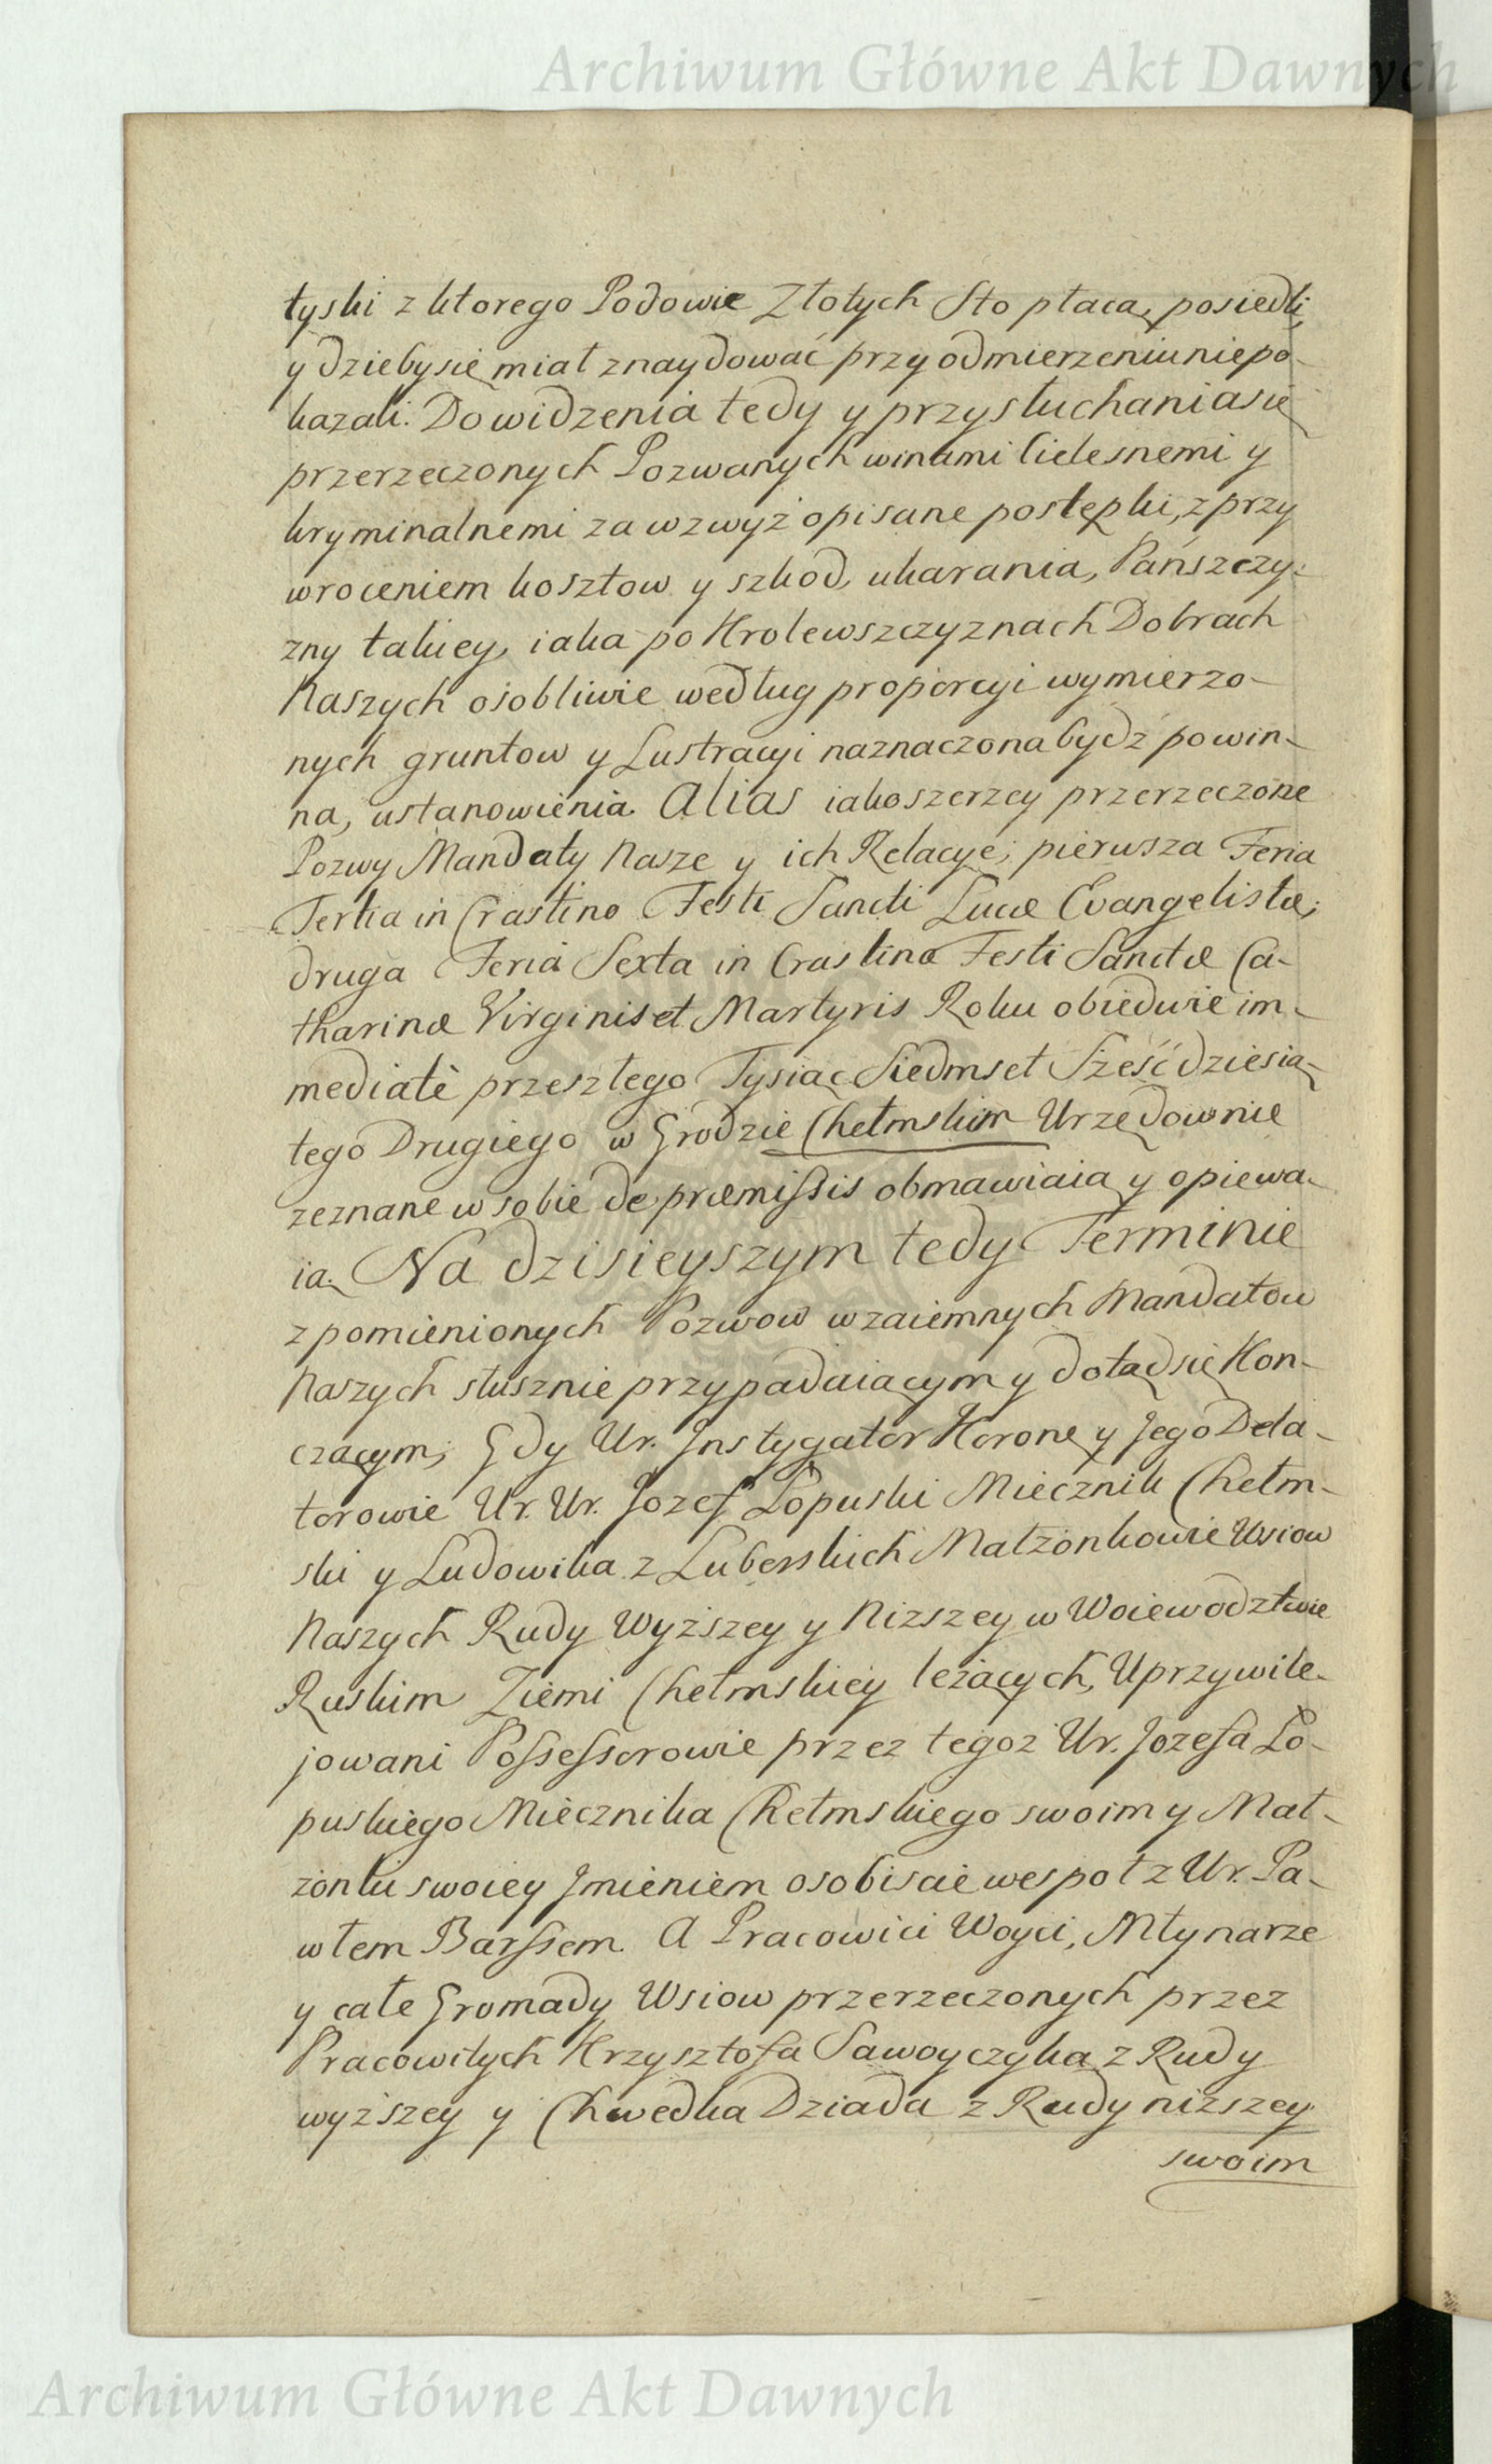 Archiwum Główne Akt Dawnych
tyski z ktorego Podowie Złotych Sto płacą, posiedli,
y dzieby się miał znaydować przy odmierzeniu niepo-
kazali. Do widzenia tedy y przysłuchania się
przerzeczonych Pozwanych winami Cielesnemi y
kryminalnemi za wzwyż opisane postępki, z przy
wroceniem kosztow y szkod, ukarania, Pańszczy-
zny takiey, iaka po Krolewszczyznach Dobrach
Naszych osobliwie według proporcyi wymierzo-
nych gruntow y Lustracyi naznaczona bydź powin-
na, ustanowienia. Alias iako szerzey przerzeczone
Pozwy Mandaty Nasze y ich Relacye, pierwsza Feria
Tertia in Crastino Festi Sancti Lucæ Evangelistæ;
druga Feria Sexta in Crastino Festi Sanctæ Ca-
tharinæ Virginis et Martyris Roku obiedwie im-
mediatè przeszłego Tysiąc Siedmset Sześćdziesią-
tego Drugiego w Grodzie Chełmskim Urzędownie
zeznane w sobie de præmissis obmawiaią y opiewa-
ią. Na dzisieyszym tedy Terminie
z pomienionych Pozwow wzaiemnych Mandatow
Naszych słusznie przypadaiącym y dotąd się Kon-
czącym, Gdy Ur. Instygator Korone y Jego Dela-
torowie Ur. Ur. Jozef Łopuski Miecznik Chełm-
ski y Ludowika z Luberskich Małżonkowie Wsiow
Naszych Rudy Wyższey y Niższey w Woiewodztwie
Ruskim Ziemi Chełmskiey leżących, Uprzywile-
jowani Possessorowie przez tegoż Ur. Jozefa Ło-
puskiego Miecznika Chełmskiego swoim y Mał-
żonki swoiey Jmieniem osobiscie wespoł z Ur. Pa-
włem Barssem. A Pracowici Woyci, Młynarze
y całe Gromady Wsiow przerzeczonych przez
Pracowitych Krzysztofa Sawoyczyka z Rudy
wyższey y Chwedka Dziada z Rudy niższey
swoim
Archiwum Główne Akt Dawnych